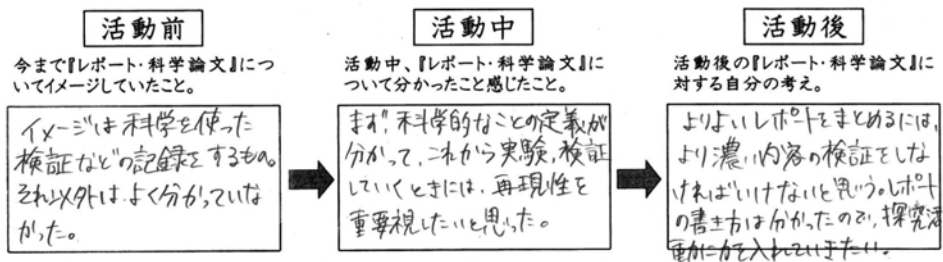 活動前
今まで『レポート・科学論文』につ
いてイメージしていたこと。
イメージは科学を使った
検証などの記録をするもの。
それ以外はよく分かっていな
かった。
活動中
活動中、『レポート・科学論文』に
ついて分かったこと感じたこと。
まず、科学的なことの定義が
分かって、これから実験、検証
していくときには、再現性を
重要視したいと思った。
活動後
活動後の『レポート・科学論文』に
対する自分の考え。
よりよいレポートをまとめるには、
より濃い内容の検証をしな
ければいけないと思う。レポート
の書き方は分かったので、探究活
動に力を入れていきたい。